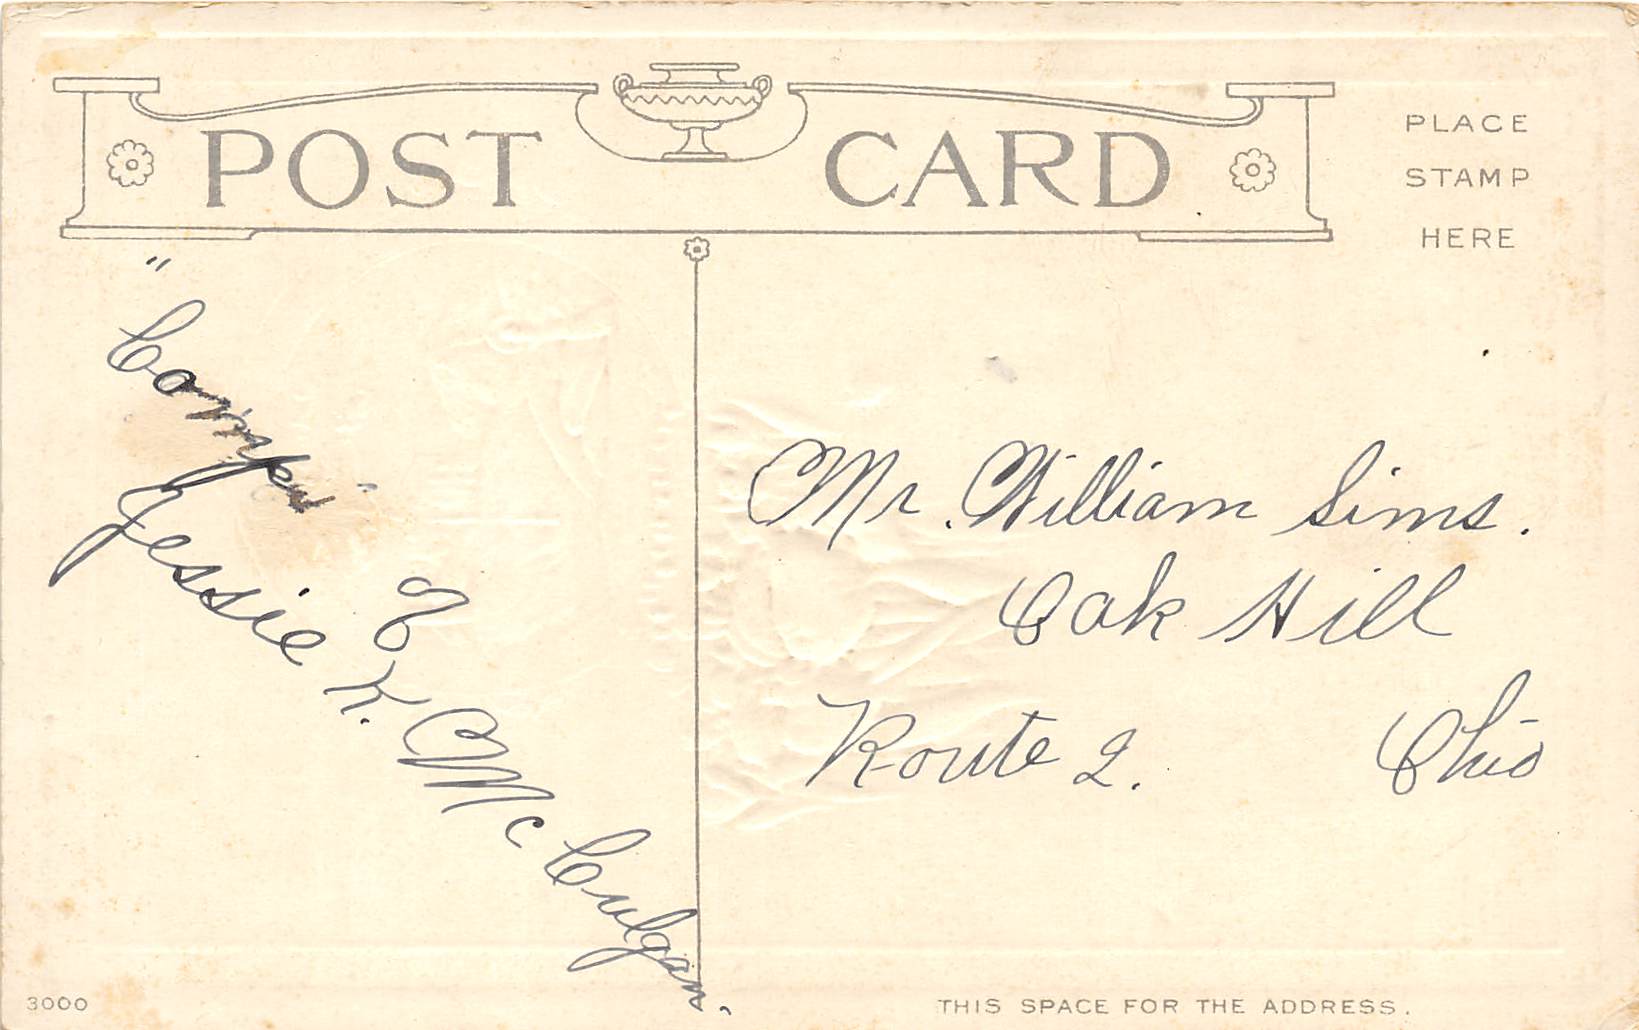 POST CARD
PLACE
STAMP
HERE
"Comp"
of
Jessie K. McCulgan.
Mr. William Sims.
Oak Hill
Route 2. Ohio
3000
THIS SPACE FOR THE ADDRESS.